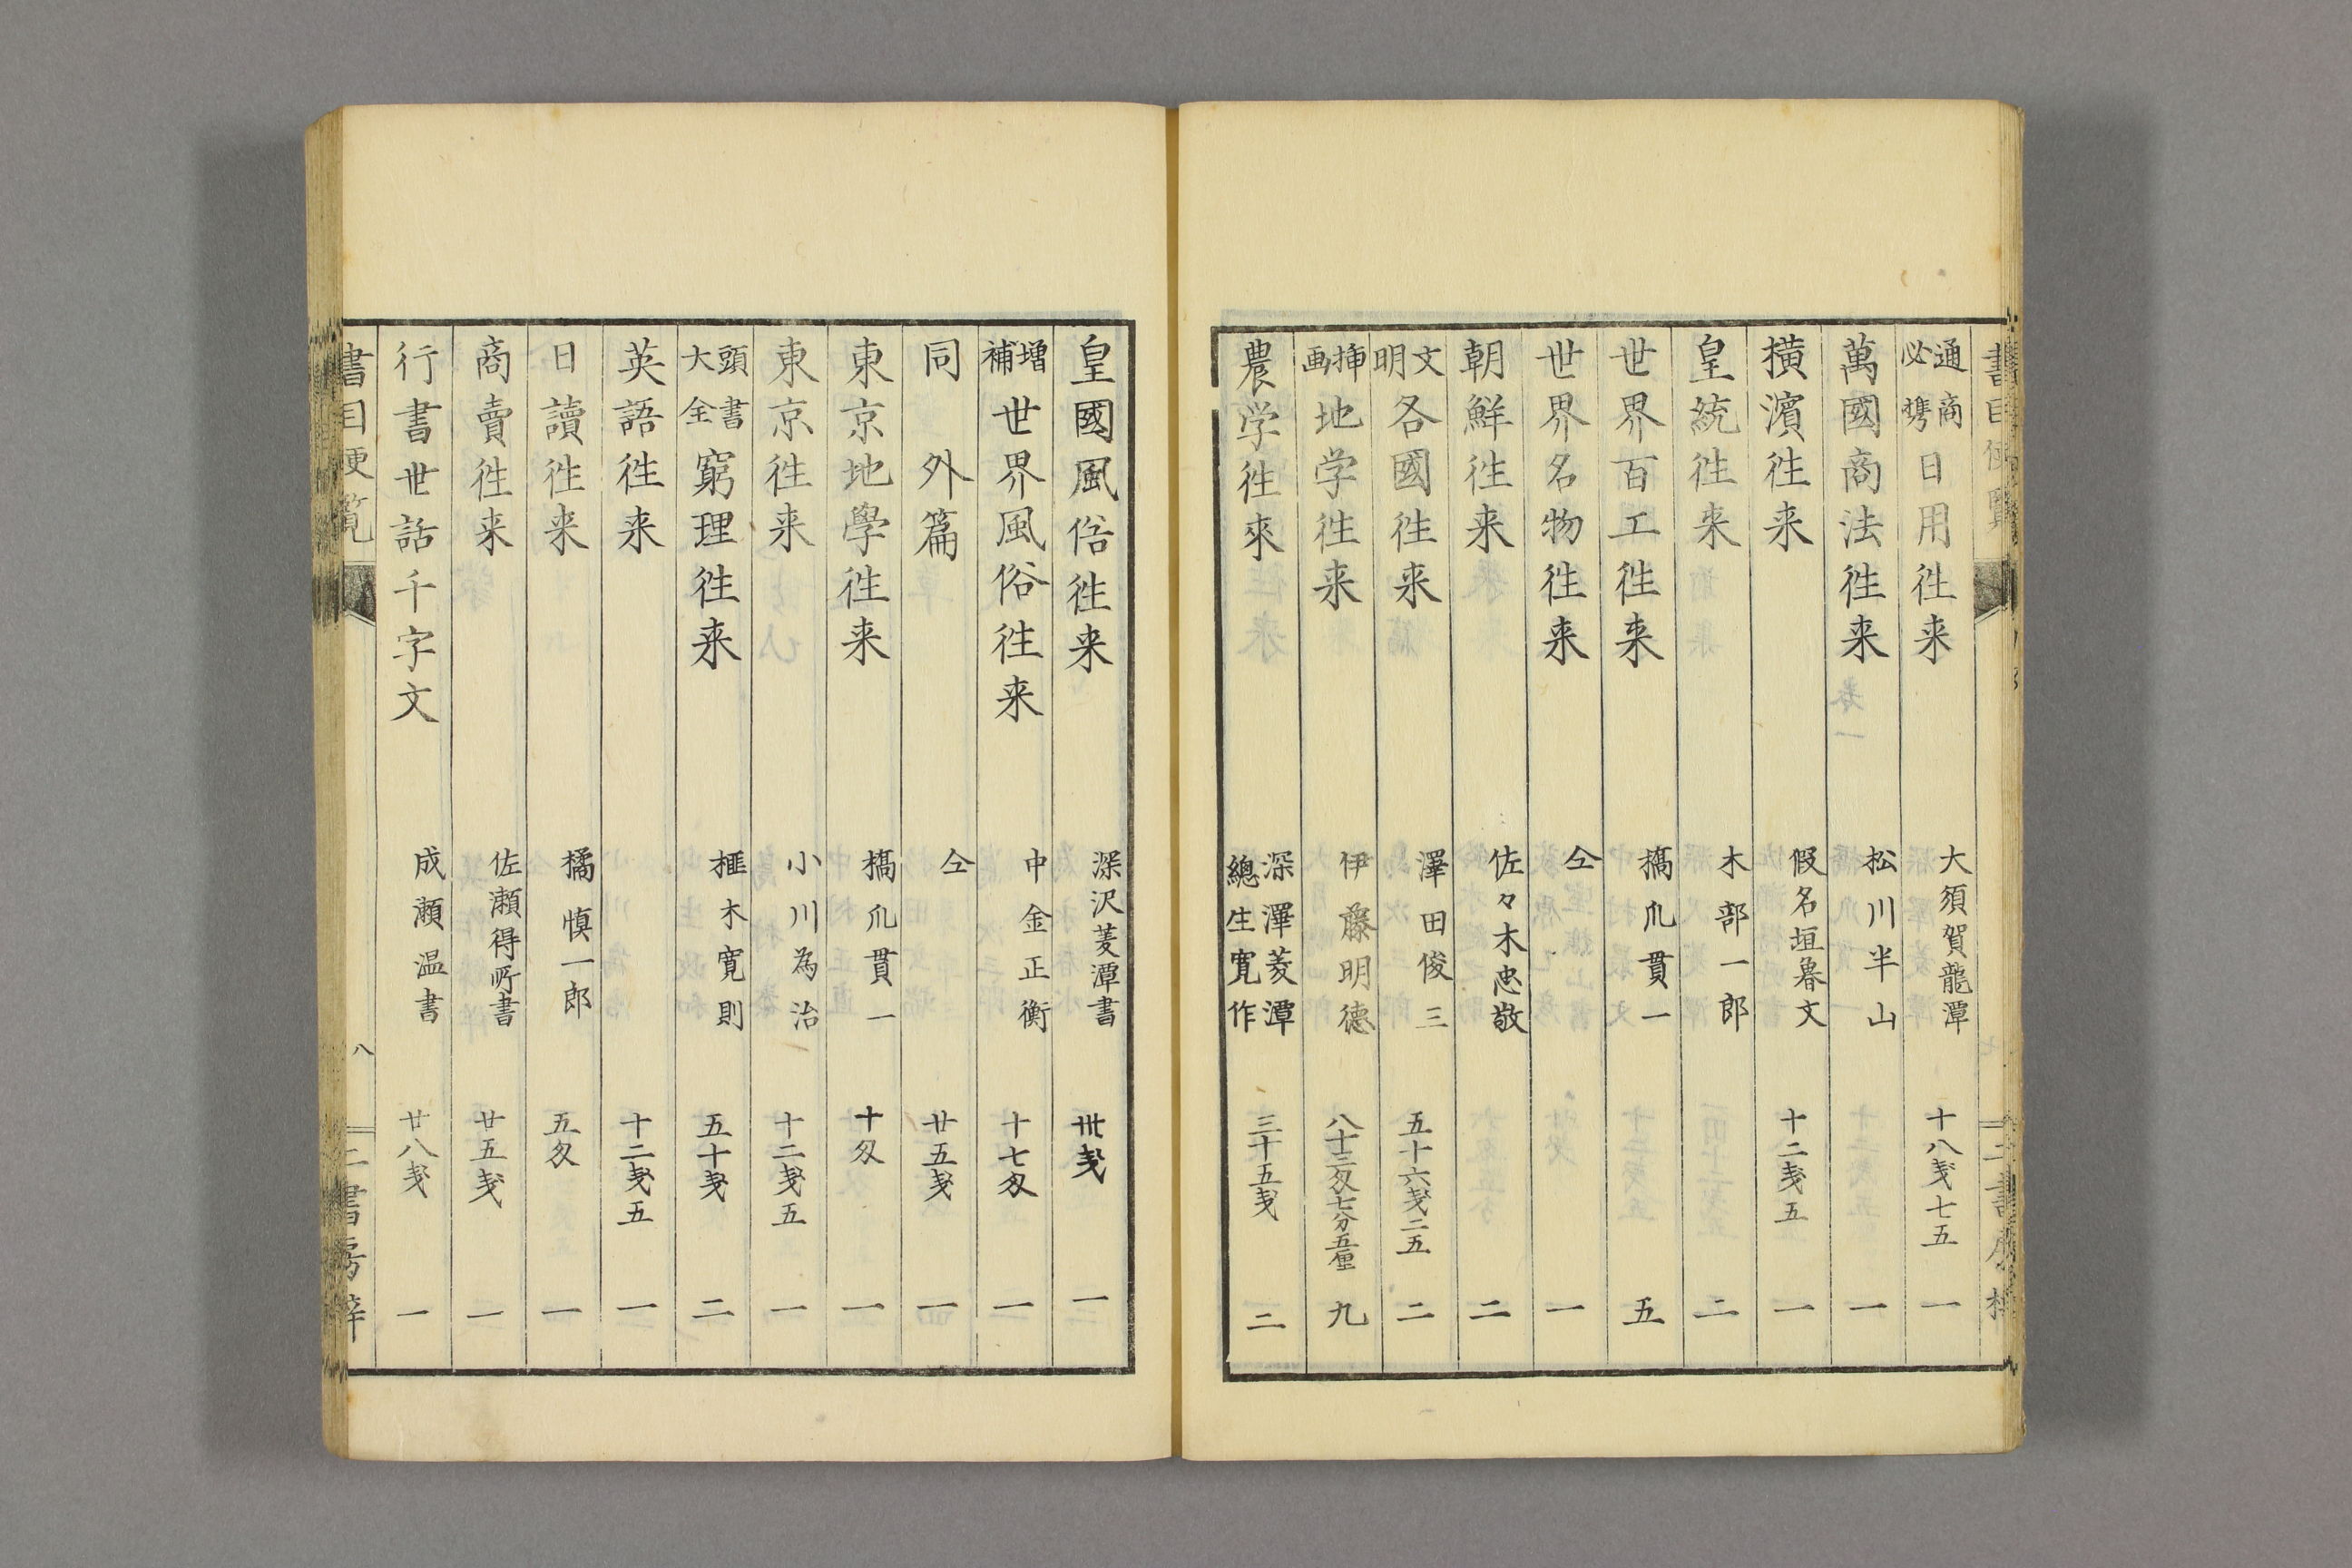 書目便覧
通商必携日用徃来 大須賀龍潭 十八戔七五 一
萬國商法徃来 松川半山 一
横濱徃来 假名垣魯文 十二戔五 一
皇統徃来 木部一郎 二
世界百工徃来 橋爪貫一 五
世界名物徃来 仝 一
朝鮮徃来 佐々木忠敬 二
文明各國徃来 澤田俊三 五十六戔二五 二
挿画地学徃来 伊藤明德 八十三匁七分五厘 九
農学徃來 深澤菱潭 總生寛作 三十五戔 二
皇國風俗徃来 深沢菱潭書 卅戔 一
増補世界風俗徃来 中金正衡 十七匁 一
同 外篇 仝 廿五戔 一
東京地學徃来 橋爪貫一 十匁 一
東京徃来 小川為治 十二戔五 一
頭書大全窮理徃来 榧木寛則 五十戔 二
英語徃来 十二戔五 一
日讀徃来 橘慎一郎 五匁 一
商賣徃来 佐瀬得所書 廿五戔 一
行書世話千字文 成瀬温書 廿八戔 一
書目便覧 八 三書房梓